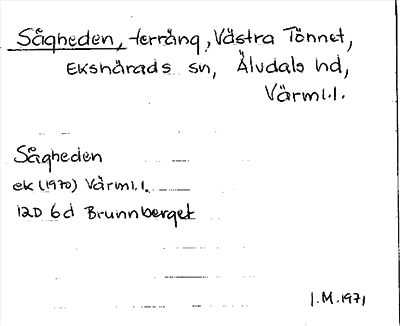 Sågheden, terräng, Västra Tönnet,
Ekshärads sn, Älvdals hd,
Värml.l.
Sågheden
ek (1970) Värml.l.
12D 6d Brunnberget
I.M. 1971